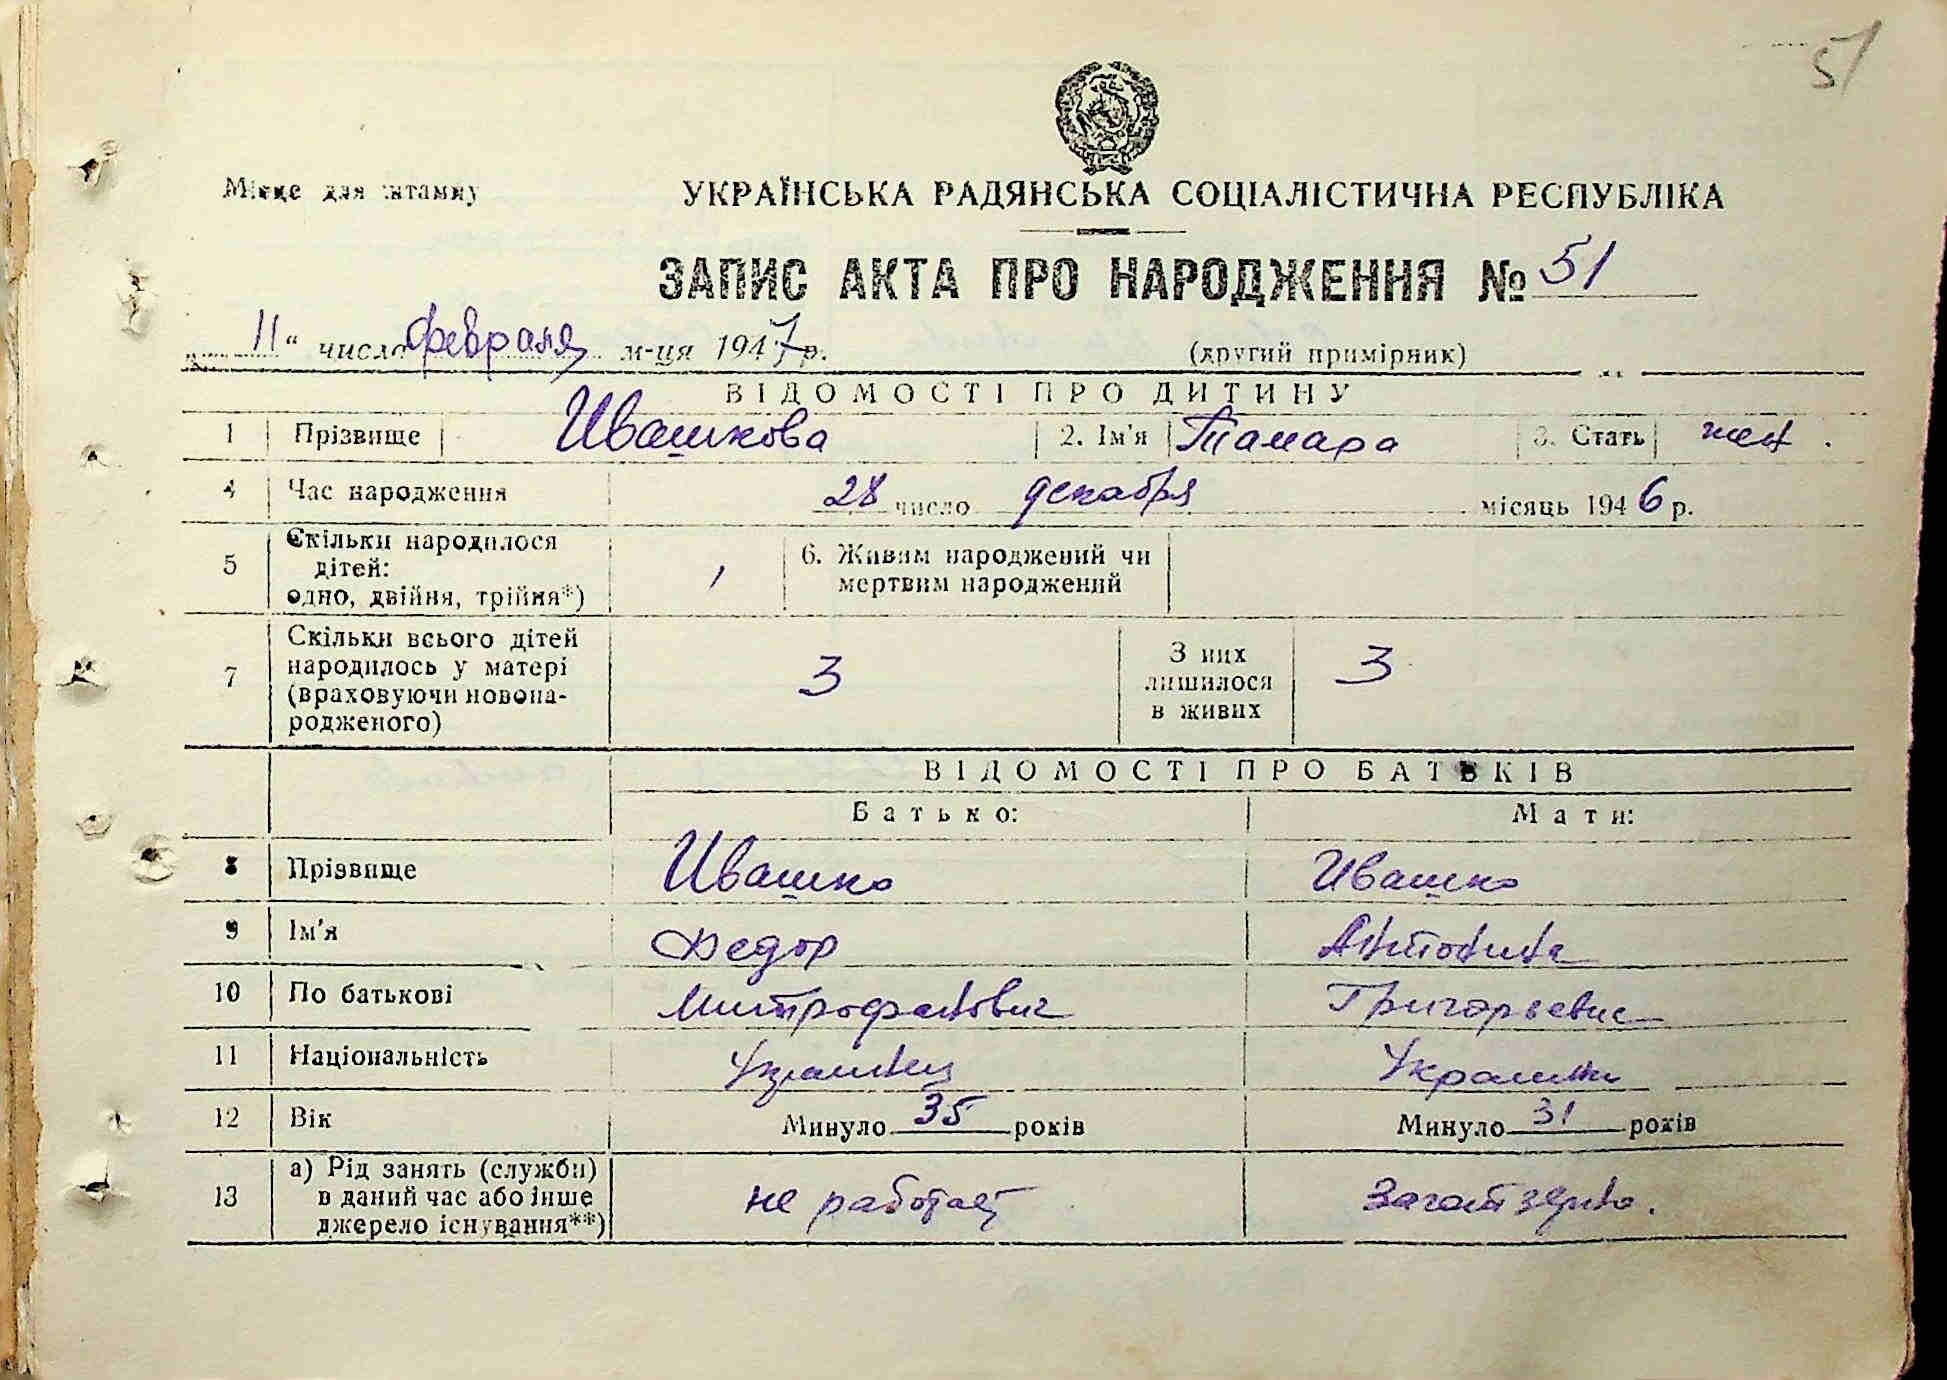 51
Місце для штампу
УКРАЇНСЬКА РАДЯНСЬКА СОЦІАЛІСТИЧНА РЕСПУБЛІКА
ЗАПИС АКТА ПРО НАРОДЖЕННЯ № 51
„11“ число февраля м-ця 1947 р.
(другий примірник)
ВІДОМОСТІ ПРО ДИТИНУ
1 Прізвище Ивашкова 2. Ім'я Тамара 3. Стать жен.
4 Час народження 28 число декабря місяць 1946 р.
5 Скільки народилося дітей: одно, двійня, трійня*) 1 6. Живим народжений чи мертвим народжений
7 Скільки всього дітей народилось у матері (враховуючи новонародженого) 3 З них лишилося в живих 3
ВІДОМОСТІ ПРО БАТЬКІВ
Батько: Мати:
8 Прізвище Ивашко Ивашко
9 Ім'я Федор Антонина
10 По батькові Митрофанович Григорьевна
11 Національність Украинец Украинка
12 Вік Минуло 35 років Минуло 31 років
13 а) Рід занять (служби) в даний час або інше джерело існування**) не работает Заготзерно.